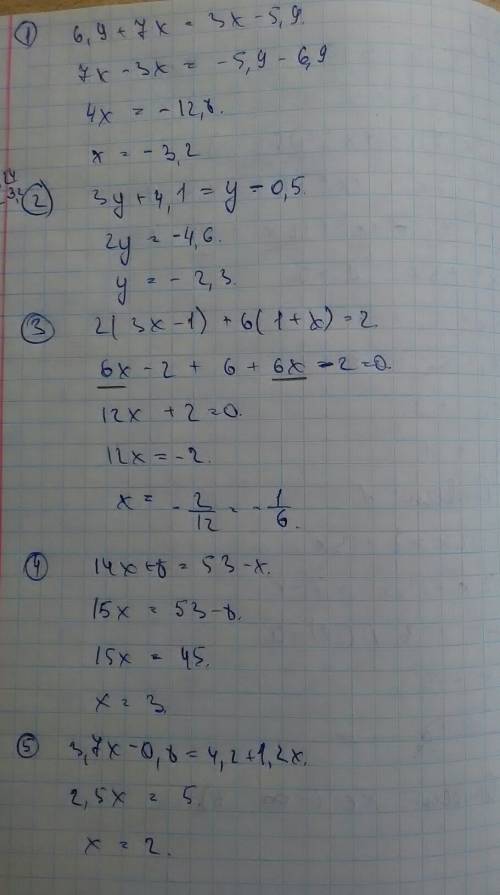 ① 6,9 + 7x = 3x - 5,9.
7x - 3x = -5,9 - 6,9
4x = -12,8.
x = -3,2
② 3y + 4,1 = y - 0,5.
2y = -4,6.
y = -2,3.
③ 2(3x-1) + 6(1+x) = 2.
6x - 2 + 6 + 6x - 2 = 0.
12x + 2 = 0.
12x = -2.
x = -2/12 = -1/6.
④ 14x+8 = 53-x.
15x = 53-8.
15x = 45.
x = 3.
⑤ 3,7x-0,8=4,2+1,2x.
2,5x = 5.
x = 2.